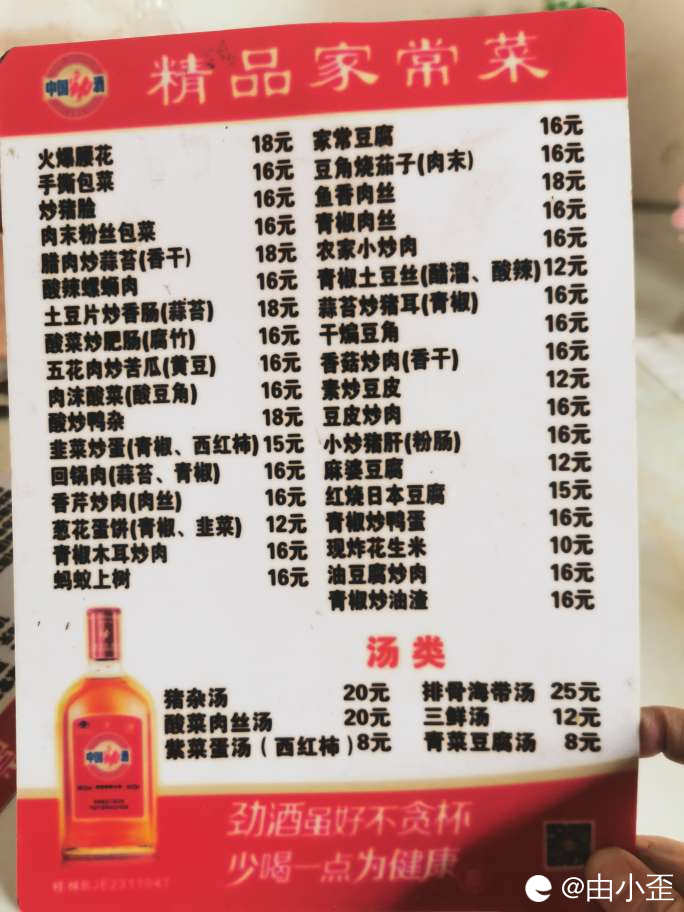 中国劲酒
精品家常菜
火爆腰花 18元
手撕包菜 16元
炒猪脸 16元
肉末粉丝包菜 16元
腊肉炒蒜苔(香干) 18元
酸辣螺蛳肉 16元
土豆片炒香肠(蒜苔) 18元
酸菜炒肥肠(腐竹) 16元
五花肉炒苦瓜(黄豆) 16元
肉沫酸菜(酸豆角) 16元
酸炒鸭杂 18元
韭菜炒蛋(青椒、西红柿) 15元
回锅肉(蒜苔、青椒) 16元
香芹炒肉(肉丝) 16元
葱花蛋饼(青椒、韭菜) 12元
青椒木耳炒肉 16元
蚂蚁上树 16元
家常豆腐 16元
豆角烧茄子(肉末) 16元
鱼香肉丝 18元
青椒肉丝 16元
农家小炒肉 16元
青椒土豆丝(醋溜、酸辣) 12元
蒜苔炒猪耳(青椒) 16元
干煸豆角 16元
香菇炒肉(香干) 16元
素炒豆皮 12元
豆皮炒肉 16元
小炒猪肝(粉肠) 16元
麻婆豆腐 12元
红烧日本豆腐 15元
青椒炒鸭蛋 16元
现炸花生米 10元
油豆腐炒肉 16元
青椒炒油渣 16元
汤类
猪杂汤 20元
酸菜肉丝汤 20元
紫菜蛋汤（西红柿）8元
排骨海带汤 25元
三鲜汤 12元
青菜豆腐汤 8元
中国劲酒
劲酒虽好不贪杯
少喝一点为健康
@由小歪